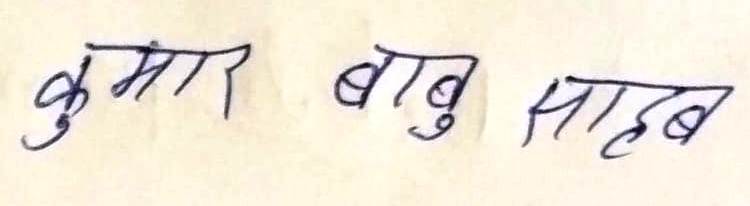 कुमार बाबु साहब